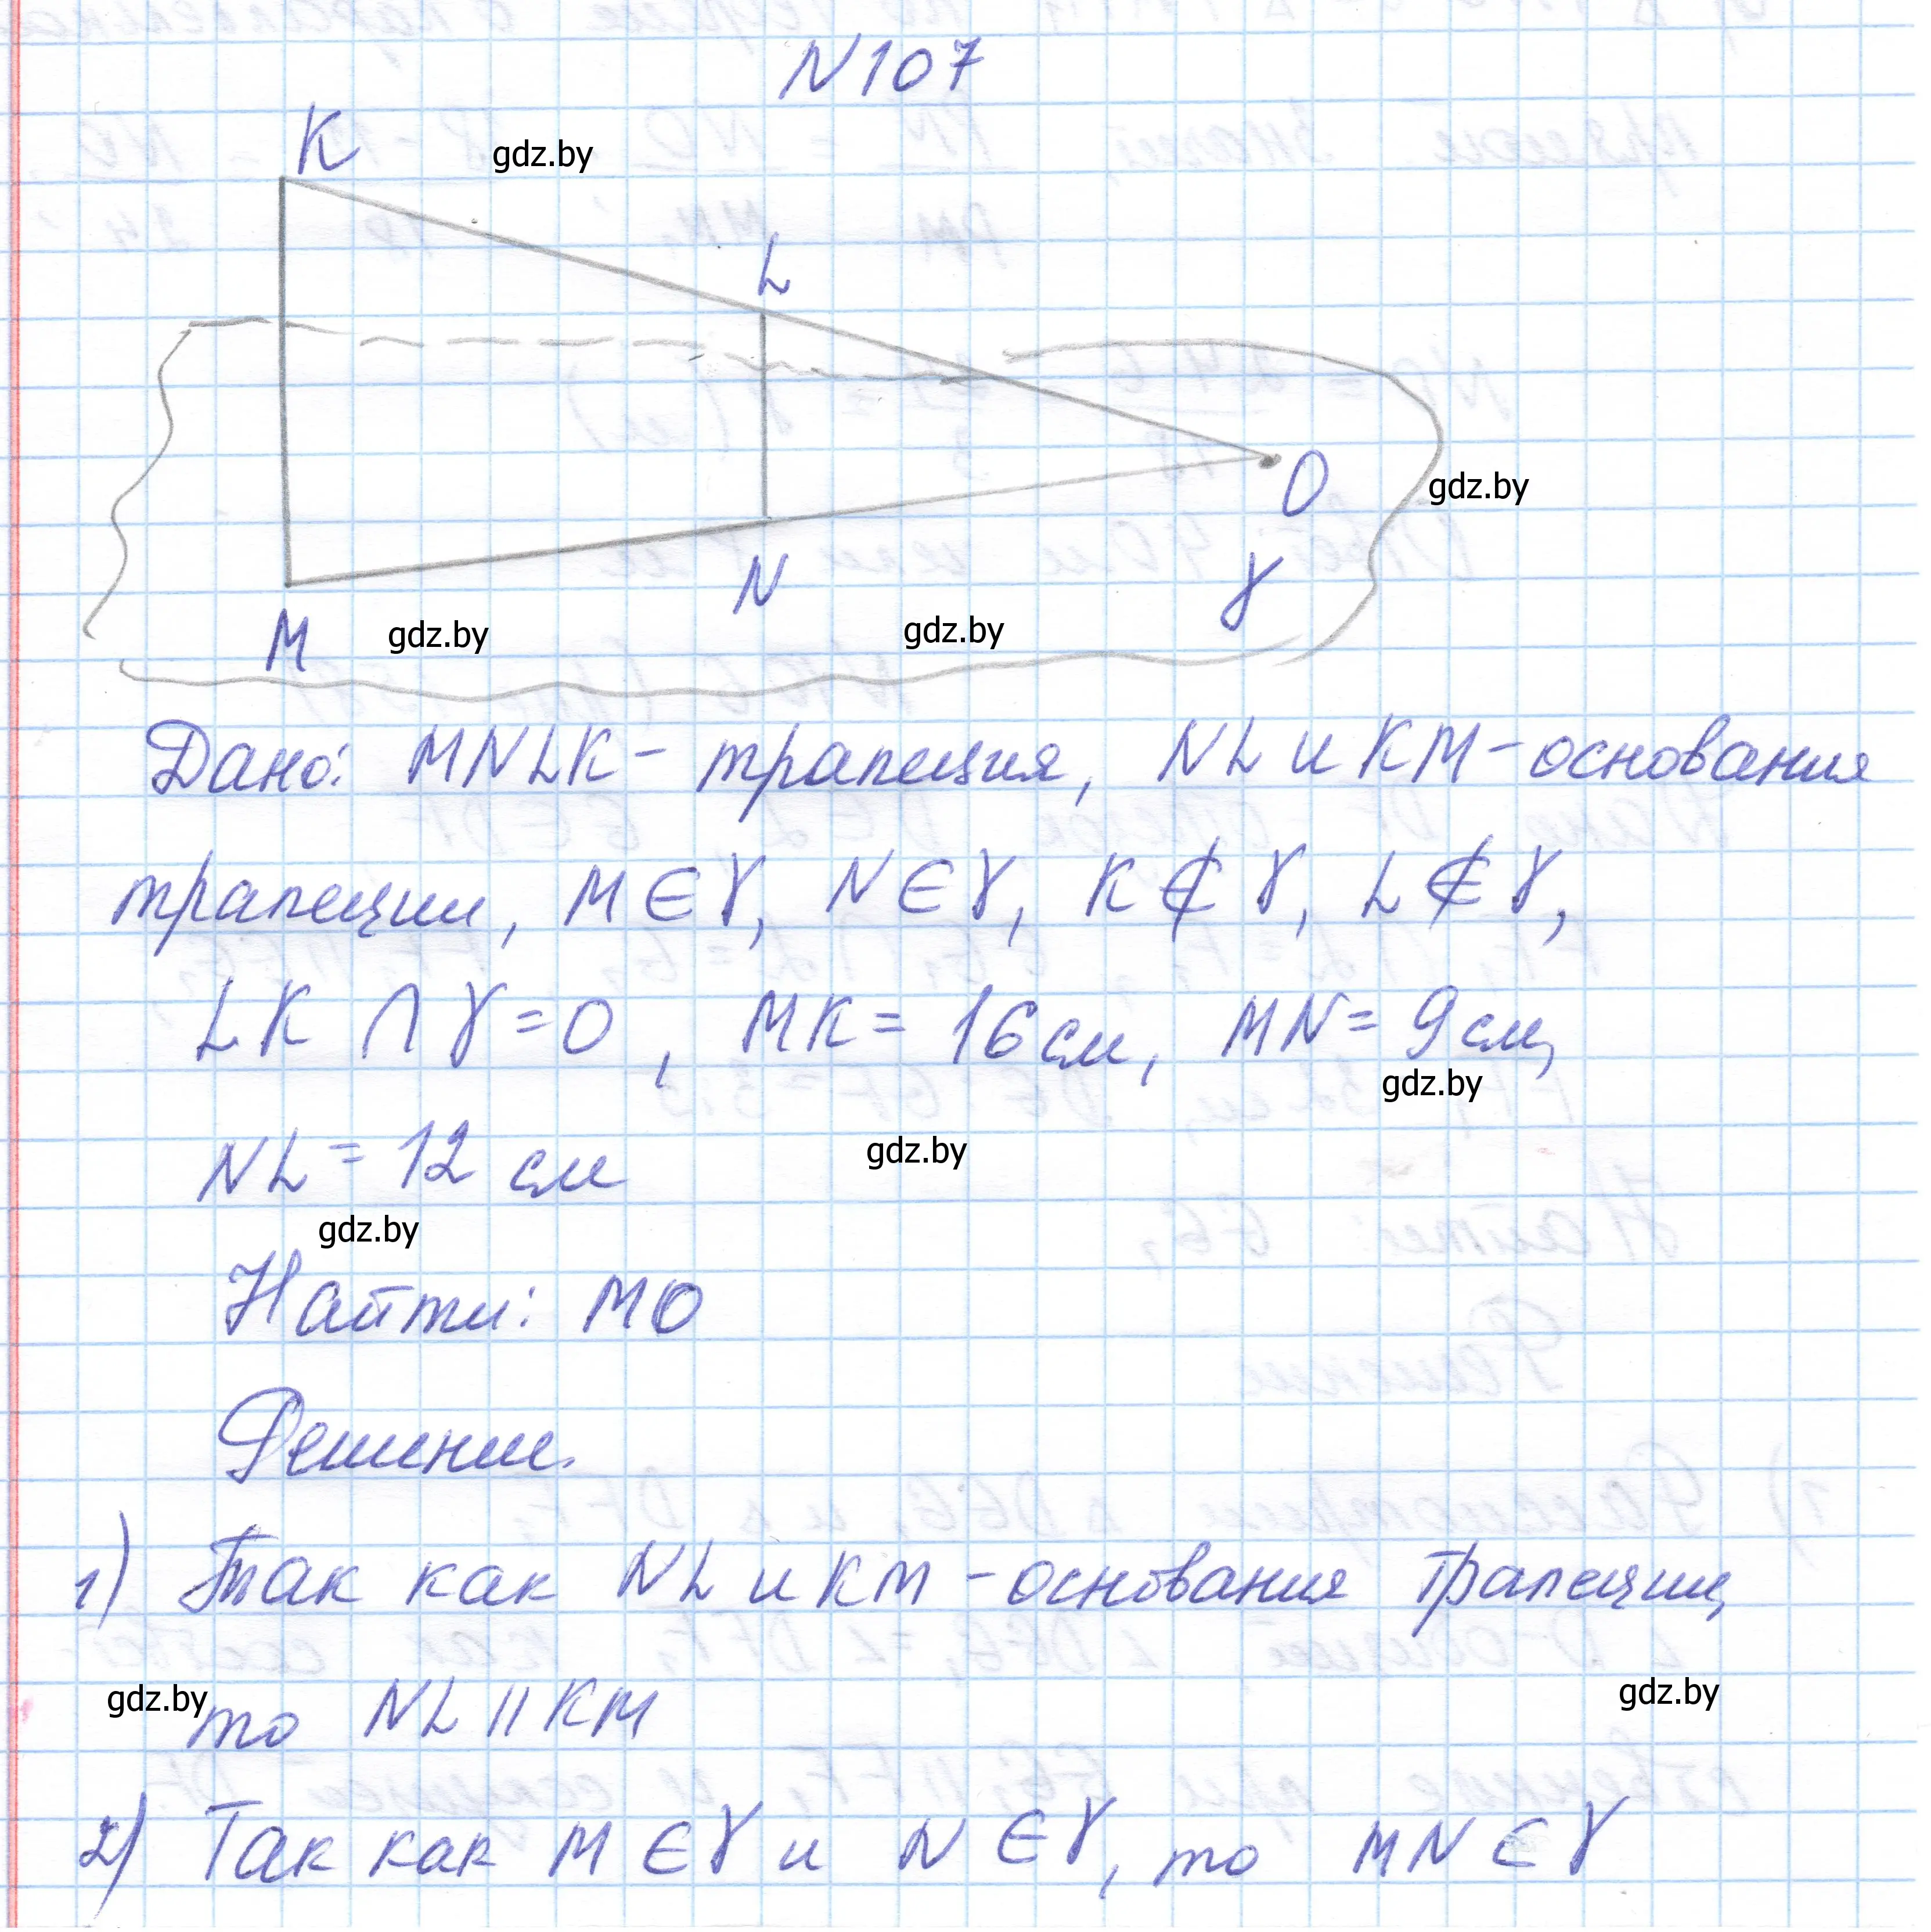 N107
K
gdz.by
L
O
gdz.by
N
γ
M
gdz.by
gdz.by
Дано: MNLK - трапеция, NL и KM - основания
трапеции, M ∈ γ, N ∈ γ, K ∉ γ, L ∉ γ,
LK ∩ γ = O, MK = 16 см, MN = 9 см,
gdz.by
NL = 12 см
gdz.by
gdz.by
Найти: MO
Решение.
1) Так как NL и KM - основания трапеции,
то NL || KM
gdz.by
gdz.by
2) Так как M ∈ γ и N ∈ γ, то MN ∈ γ